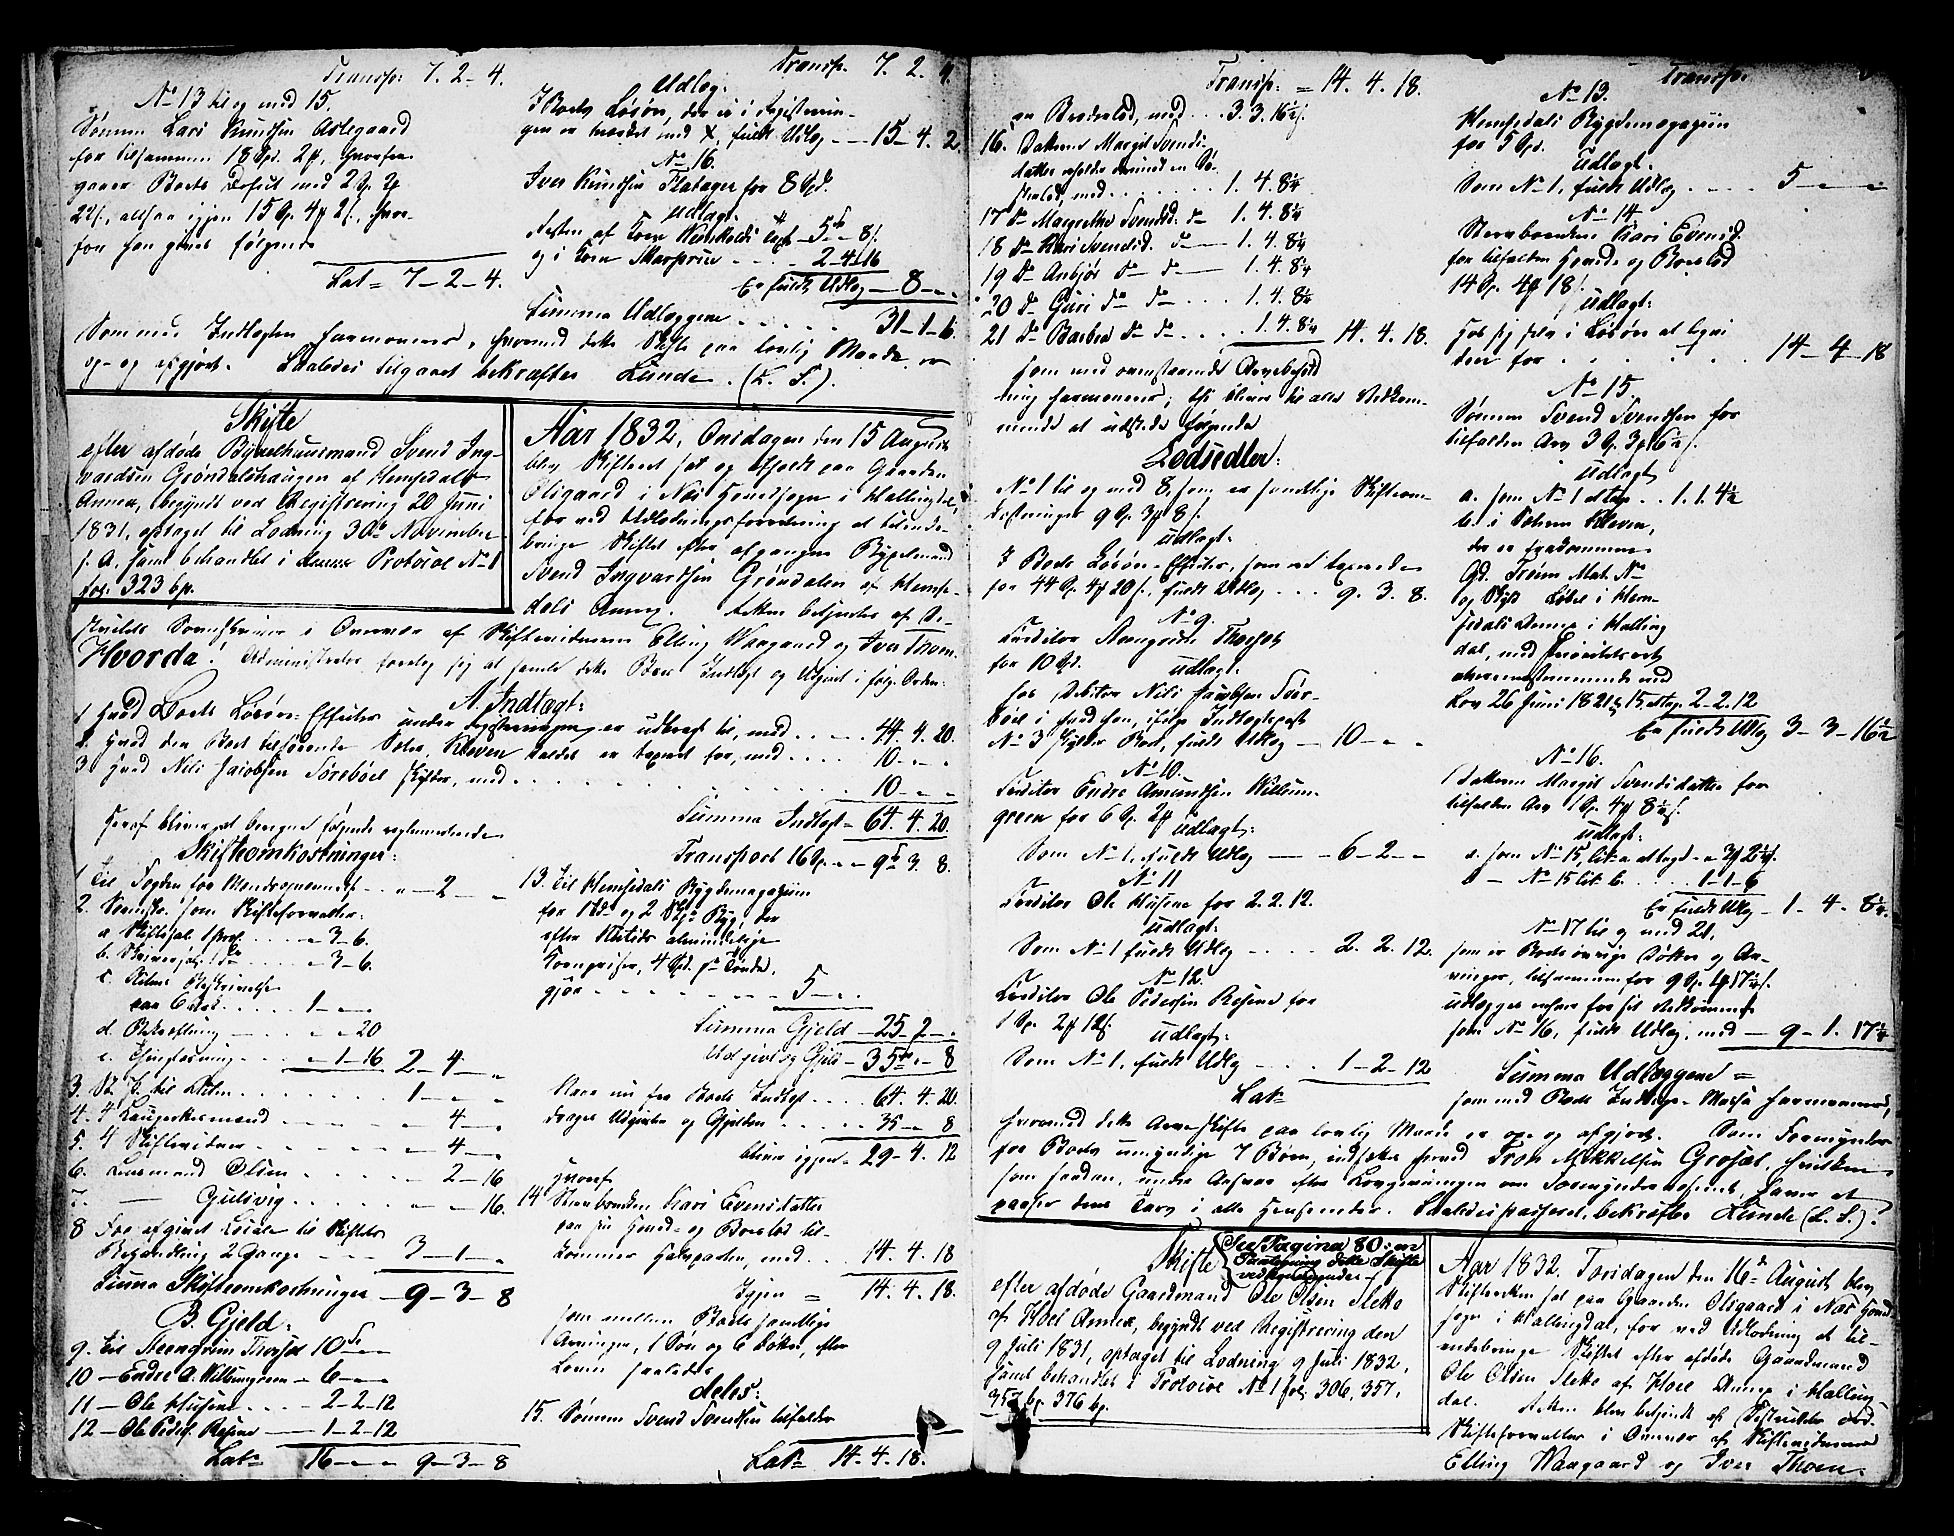 Transp: 7. 2 – 4.
No 13 til og med 15.
Sønnen Lars Knudsen Aslegaard
for tilsammen 18 Spd. 2 #, hvorfra
gaaer Boets Deficit med 2 Sp.
22 s., altsaa igjen 15 Sp. 4 # 2 s., hvor-
for han gives følgende
Lat = 7 – 2 – 4.
Transp. 7. 2. 4.
Udlæg:
I Boets Løsøre, der er i Registerin-
gen er mærket med X, fuldt Udlæg – 15 – 4. 2
No 16.
Iver Knudsen Flatager for 8 Spd.
Udlagt:
og i Koen Skarprei . . . 2 – 4 – 16
Er fuldt Udlæg – 8 – „ „
Summa Udlæggene . . . . . 31 – 1 – 6.
Som med Indtægten harmonerer, hvormed dette Skifte paa lovlig Maade er
op- og afgjort. Saaledes tilgaaet bekræfter Lunde. (L. S.).
Skifte
efter afdøde Bygselhuusmand Svend Ing-
vardsen Grøndalshaugen af Hemsedals
Annex, begyndt ved Registrering 20 Juni
1831, optaget til Lodning 30te November
s. A. samt behandlet i Protocol No 1
fol. 323 b p.
Aar 1832, Onsdagen den 15 August
blev Skifteret sat og afholdt paa Gaarden
Oligaard i Næs Hovedsogn i Hallingdal,
for ved Udlodningsforretning at tilende-
bringe Skiftet efter afgangne Bygselmand
Svend Ingvardsen Grøndalen af Hemse-
dals Annex. Retten betjentes af De-
struktets Sorenskriver i Overvær af Skiftevidnerne Elling Waagaard og Iver Thoen.
Hvorda: Administrator foretog sig at samle dette Boes Indtægt og Udgivt i følg. Orden:
A. Indtægt:
1 Hvad Boets Løsøre-Effecter under Registreringen er udbragt til, med . . . . . 44. 4. 20.
2. Hvad den Boet tilhørende Sæter, Kleven kaldet er taxeret for, med . . . . 10. – „ „
3 Hvad Nils Jacobsen Sørebøel skylder, med . . . . . 10 – „ „
Summa Indtægt = 64. 4. 20.
Heraf bliver at beregne følgende reglementerede
Skifteomkostninger:
1. Til Fogden for . . . „ – 2 – „
2. Som Skifteforvalter:
a Skiftesal. . . . „ – 3 – 6.
b. Skriversal. . . . „ – 3 – 6.
c. Beskrivelse
paa 6 Ark. . . . 1 – „ „
d. Bekræftning . . . „ „ 20
e. Thinglæsning . . . „ – 1 – 16 2 – 4 – „
3. Til . . . . . 1 – „ „
4. 4 Laugrettesmænd . . . . „ – 4 – „
5. 4 Skiftevidner . . . . „ – 4 – „
6. Lensmand Olsen . . . . „ – 2 – 16
7. – Gulsvig . . . . „ „ 16.
8 For afgivet Locale til Skiftets
Behandling 2 Gange . . . 3 – 1 – „
Summa Skifteomkostninger – 9 – 3 – 8
B. Gjeld:
9. Til Steengrim Thorset 10 – „ „
10 – Endre A. Willumgreen – 6 – „ „
11 – Ole Husene . . . . 2 – 2 – 12
12 – Ole Peders. Resene – 1 – 2 – 12
Lat = 16 – „ „ 9 – 3 – 8
Transport 16 Sp. „ „ 9 3. 8.
13. Til Hemsedals Bygdemagazin
for 1 Tde og 2 Skp. Byg, der
efter Stedets almindelige
Kornpriser, 4 Spd. pr Tønde,
gjør . . . . . 5 – „ „
Summa Gjeld – 25 – 2 – „
Udgivt og Gjeld – 35 „ – 8
Naar nu fra Boets Indtægt . . . . 64. 4. 20.
drages Udgivten og Gjelden . . . . 35 – „ 8
bliver igjen – 29 – 4. 12
hvoraf
14 Sterboenken Kari Evensdatter
paa sin Hoved- og Boeslod til-
kommer Halvparten, med . . . 14. 4. 18
Igjen = 14. 4. 18.
som mellem Boets samtlige
Arvinger, 1 Søn og 6 Døttre, efter
Loven saaledes
deles:
15. Sønnen Svend Svendsen tilfalder
Lat = 14. 4. 18.
Transp: = 14. 4. 18.
en Broderlod, med . . . 3. 3. 16½ s.
16. Datteren Margit Svends-
datter ligeledes en Sø-
sterlod, med . . . . . 1. 4. 8¼
17 Do Margrethe Svendsd. do 1. 4. 8¼
18 Do Kari Svendsd. do – 1. 4. 8¼
19 Do Anbjør do do – 1. 4. 8¼
20 do Guri do do . . . 1. 4. 8¼
21 do Barbra do do . . . 1. 4. 8¼ 14. 4. 18.
som med ovenstaaende Arvebehold-
ning harmonerer; thi bliver da alle Vedkom-
mende at udstede følgende
Lodsedler:
No 1 til og med 8, som er samtlige Skifteom-
kostninger 9 Sp. 3 # 8 s.
udlagt:
I Boets Løsøre-Effecter, som er taxerede
for 44 Sp. 4 # 20 s., fuldt Udlæg . . . 9. 3. 8.
No 9.
Creditor Steengrim Thorset
for 10 Spd.
udlagt:
hos Debitor Nils Jacobsen Søre-
bøel i , ifølge Indtægtspost
No 3 skylder Boet, fuldt Udlæg – 10 – „ „
No 10.
Creditor Endre Amundsen Willum-
green for 6 Sp. 2 #
udlagt:
Som No 1, fuldt Udlæg – – 6 – 2 – „
No 11
Creditor Ole Husene for 2. 2. 12.
udlagt:
Som No 1 fuldt Udlæg . . . . 2. 2. 12.
No 12.
Creditor Ole Pedersen Resene for
1 Sp. 2 # 12 s.
udlagt:
Som No 1, fuldt Udlæg . . . . 1 – 2 – 12
Lat =
Transp.
No 13.
Hemsedals Bygdemagazin
for 5 Spd.
Udlagt:
Som No 1, fuldt Udlæg . . . . 5 – „ „
No 14
Sterboenken Kari Evensd.
for tilfalden Hoved- og Boeslod
14 Sp. 4 # 18 s.
udlagt:
Hos sig selv i Løsøre at
den for . . . . . . 14 – 4 – 18
No 15
Sønnen Svend Svendsen for
tilfalden Arv 3 Sp. 3 # 16½ s.
udlagt
a. som No 1 . . 1. 1. 4½
b. i Sæteren Kleven,
der er fradømmen
Gd. Trøim Mat. No
og Løbe i Hem-
sedals Annex i Halling-
dal, med Prioritetsret
overeensstemmende med
Lov 26 Juni 1821 § 15, 2 – 2. 12
Er fuldt Udlæg 3 – 3 – 16½
No 16.
Datteren Margit Svendsdatter for
tilfalden Arv 1 Sp. 4 # 8¼ s.
udlagt:
a. som No 15, lit. a „ 3 # 2¼ s.
b – No 15 lit. b. . . . 1 – 1 – 6
Er fuldt Udlæg – 1. 4. 8¼.
No 17 til og med 21,
som er Boets øvrige Døttre og Ar-
vinger, tilsammen for 9 Sp. 1 # 17¼ s.
udlægges enhver for sit Vedkommende
som No 16, fuldt Udlæg, med – 9 – 1. 17¼
Summa Udlæggene =
som med Boets Indtægts-Massa harmonerer,
hvormed dette Arveskifte paa lovlig Maade er op- og afgjort. Som Formynder
for Boets umyndige 7 Børn, indsættes herved Tron Mikkelsen Grøsæt, hvilken
som saadan, under Ansvar efter Lovgivningen om Formynderskabet, haver at
paasee deres Tarv i alle Henseender. Saaledes passeret, bekræfter Lunde (L. S.).
Skifte
See Pagina 80: en
dette Skifte
vedkommende.
efter afdøde Gaardmand Ole Olsen Slette
af Hoel Annex, begyndt ved Registrering den
9 Juli 1831, optaget til Lodning 9 Juli 1832,
samt behandlet i Protocol No 1 fol. 306, 357,
357 b, 376 b p.
Aar 1832, Torsdagen den 16de August, blev
Skifteretten sat paa Gaarden Oligaard i Næs Hoved-
sogn i Hallingdal, for ved Udlodning at til-
endebringe Skiftet efter afdøde Gaardmand
Ole Olsen Slette af Hoel Annex i Halling-
dal. Retten blev betjent af Destruktets ord.
Skifteforvalter i Overvær af Skiftevidnerne
Elling Waagaard og Iver Thoen.